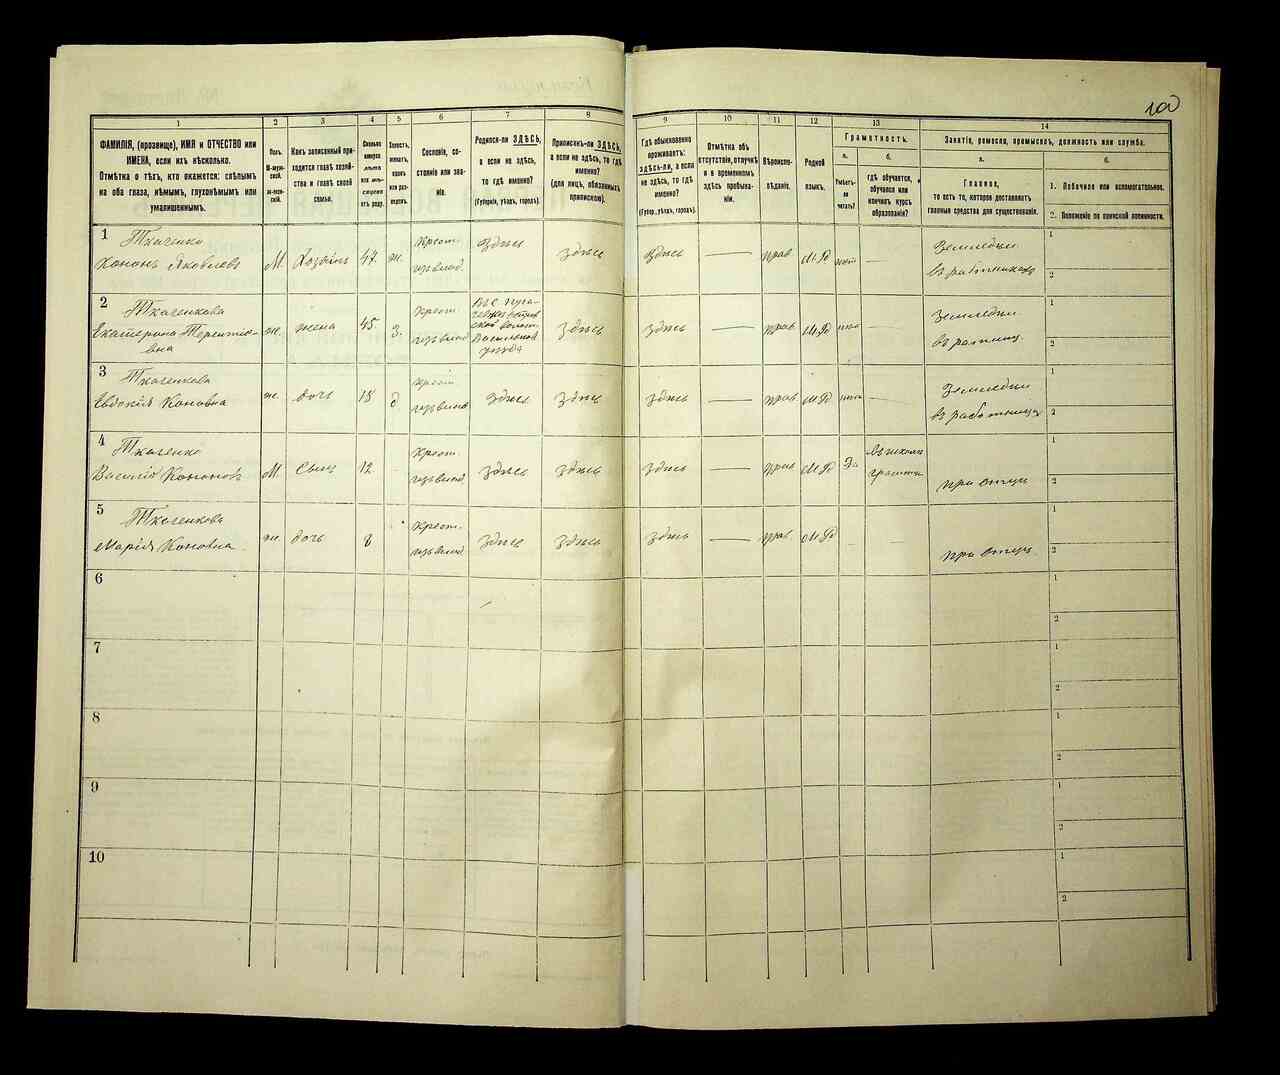 100
1
2
3
4
5
6
7
8
9
10
11
12
13
14
ФАМИЛІЯ, (прозвище), ИМЯ и ОТЧЕСТВО или
ИМЕНА, если ихъ нѣсколько.
Отмѣтка о тѣхъ, кто окажется: слѣпымъ
на оба глаза, нѣмымъ, глухонѣмымъ или
умалишеннымъ.
Полъ.
М-муж-
ской.
ж-жен-
скій.
Какъ записанный при-
ходится главѣ хозяй-
ства и главѣ своей
семьи.
Сколько
минуло
лѣтъ
или мѣ-
сяцевъ
отъ роду.
Холостъ,
женатъ,
вдовъ
или раз-
веденъ.
Сословіе, со-
стояніе или зва-
ніе.
Родился-ли ЗДѢСЬ,
а если не здѣсь,
то гдѣ именно?
(Губернія, уѣздъ, городъ).
Приписанъ-ли ЗДѢСЬ,
а если не здѣсь, то гдѣ
именно?
(для лицъ, обязанныхъ
припискою).
Гдѣ обыкновенно
проживаетъ:
ЗДѢСЬ-ЛИ, а если
не здѣсь, то гдѣ
именно?
(Губерн., уѣздъ, городъ).
Отмѣтка объ
отсутствіи, отлучкѣ
и о временномъ
здѣсь пребыва-
ніи.
Вѣроиспо-
вѣданіе.
Родной
языкъ.
Грамотность.
а.
Умѣетъ-
ли
читать?
б.
гдѣ обучается,
обучался или
кончилъ курсъ
образованія?
Занятіе, ремесло, промыселъ, должность или служба.
а.
Главное,
то есть то, которое доставляетъ
главныя средства для существованія.
б.
1. Побочное или вспомогательное.
2. Положеніе по воинской повинности.
1
Ткаченко
Кононъ Яковлевъ
М
Хозяинъ
47
ж.
Крест.
Здѣсь
здѣсь
Здѣсь
прав
М.Р
нет
Земледѣл.
въ работникахъ
1
2
2
Ткаченкова
Екатерина Терентіе-
вна
ж.
жена
45
З.
Крест.
здѣсь
здѣсь
прав
М.Р
Земледѣл.
1
2
3
Ткаченкова
Евдокія Кононовна
ж.
дочь
18
д
Крест.
здѣсь
здѣсь
здѣсь
прав
М.Р
Земледѣл.
въ работницахъ
1
2
4
Ткаченко
Василій Кононовъ
М.
Сынъ
12
Крест.
здѣсь
здѣсь
здѣсь
прав
М.Р
Да
въ школѣ
грамоты
при отцѣ
1
2
5
Ткаченкова
Марія Кононовна
ж.
дочь
8
Крест.
здѣсь
здѣсь
здѣсь
прав
М.Р
при отцѣ
1
2
6
1
2
7
1
2
8
1
2
9
1
2
10
1
2